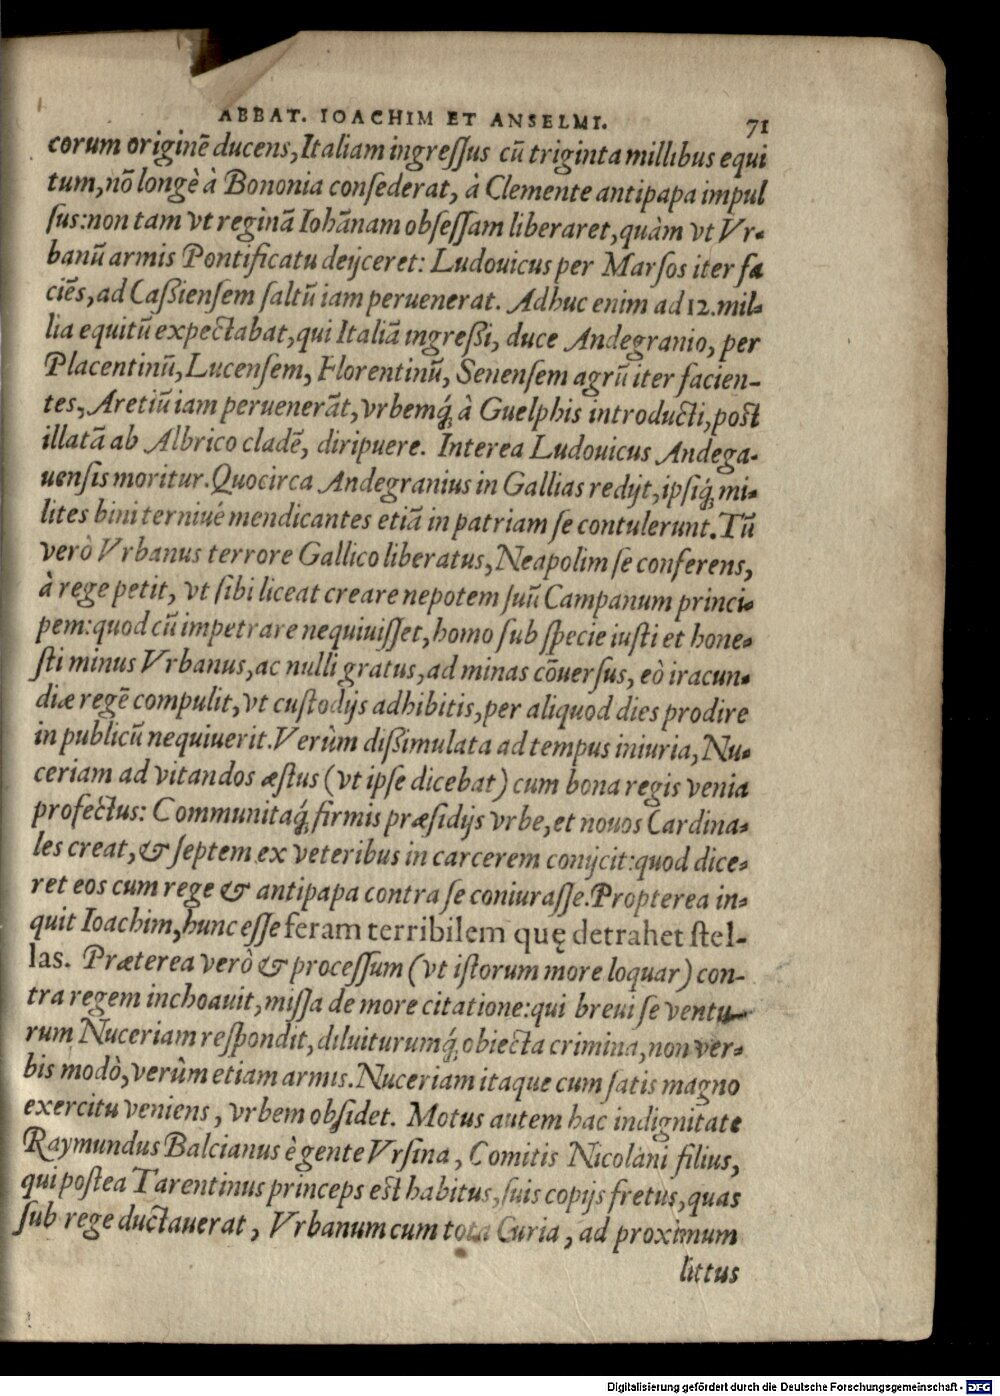 ABBAT. IOACHIM ET ANSELMI. 71
corum originē ducens, Italiam ingreſſus cū triginta millibus equi
tum, nō longè à Bononia conſederat, à Clemente antipapa impul
ſus: non tam vt reginā Iohānam obſeſſam liberaret, quàm vt Vr-
banū armis Pontificatu deijceret: Ludouicus per Marſos iter fa
ciēs, ad Caßienſem ſaltū iam peruenerat. Adhuc enim ad 12. mil-
lia equitū expectabat, qui Italiā ingreßi, duce Andegranio, per
Placentinū, Lucenſem, Florentinū, Senenſem agrū iter facien-
tes, Aretiū iam peruenerāt, vrbemq́; à Guelphis introducti, post
illatā ab Albrico cladē, diripuere. Interea Ludouicus Andega-
uenſis moritur. Quocirca Andegranius in Gallias redijt, ipſiq́; mi-
lites bini terniué mendicantes etiā in patriam ſe contulerunt. Tū
verò Vrbanus terrore Gallico liberatus, Neapolim ſe conferens,
à rege petit, vt ſibi liceat creare nepotem ſuū Campanum princi-
pem: quod cū impetrare nequiuiſſet, homo ſub ſpecie iuſti et hone-
ſti minus Vrbanus, ac nulli gratus, ad minas cōuerſus, eò iracun-
diæ regē compulit, vt cuſtodijs adhibitis, per aliquod dies prodire
in publicū nequiuerit. Verùm dißimulata ad tempus iniuria, Nu-
ceriam ad vitandos æſtus (vt ipſe dicebat) cum bona regis venia
profectus: Communitaq́; firmis præſidijs vrbe, et nouos Cardina-
les creat, & ſeptem ex veteribus in carcerem conijcit: quod dice-
ret eos cum rege & antipapa contra ſe coniuraſſe. Propterea in-
quit Ioachim, hunc eſſe feram terribilem quę detrahet ſtel-
las. Præterea verò & proceſſum (vt iſtorum more loquar) con-
tra regem inchoauit, miſſa de more citatione: qui breui ſe ventu-
rum Nuceriam reſpondit, diluiturumq́; obiecta crimina, non ver-
bis modò, verùm etiam armis. Nuceriam itaque cum ſatis magno
exercitu veniens, vrbem obſidet. Motus autem hac indignitate
Raymundus Balcianus è gente Vrſina, Comitis Nicolàni filius,
qui poſtea Tarentinus princeps est habitus, ſuis copijs fretus, quas
ſub rege ductauerat, Vrbanum cum tota Curia, ad proximum
littus
Digitalisierung gefördert durch die Deutsche Forschungsgemeinschaft - DFG